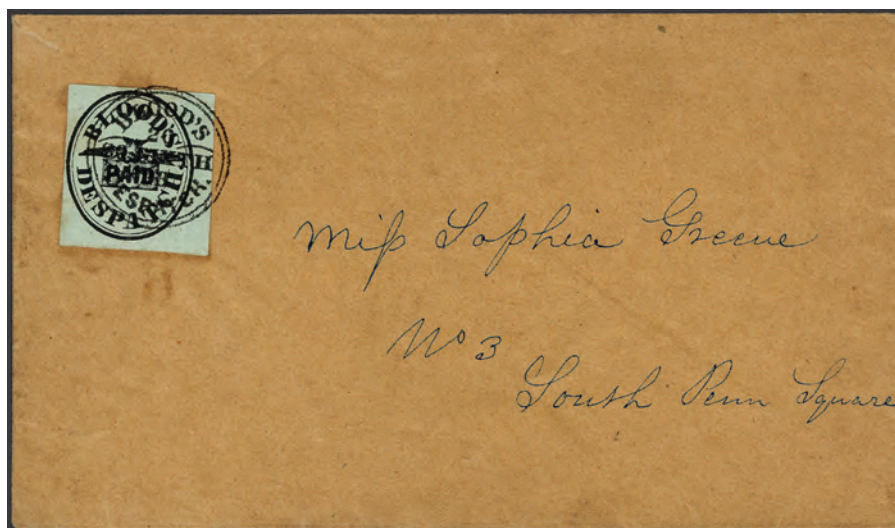 BLOOD'S
PAID
DESPATCH
Miſs Sophia Greene
No 3
South Penn Square